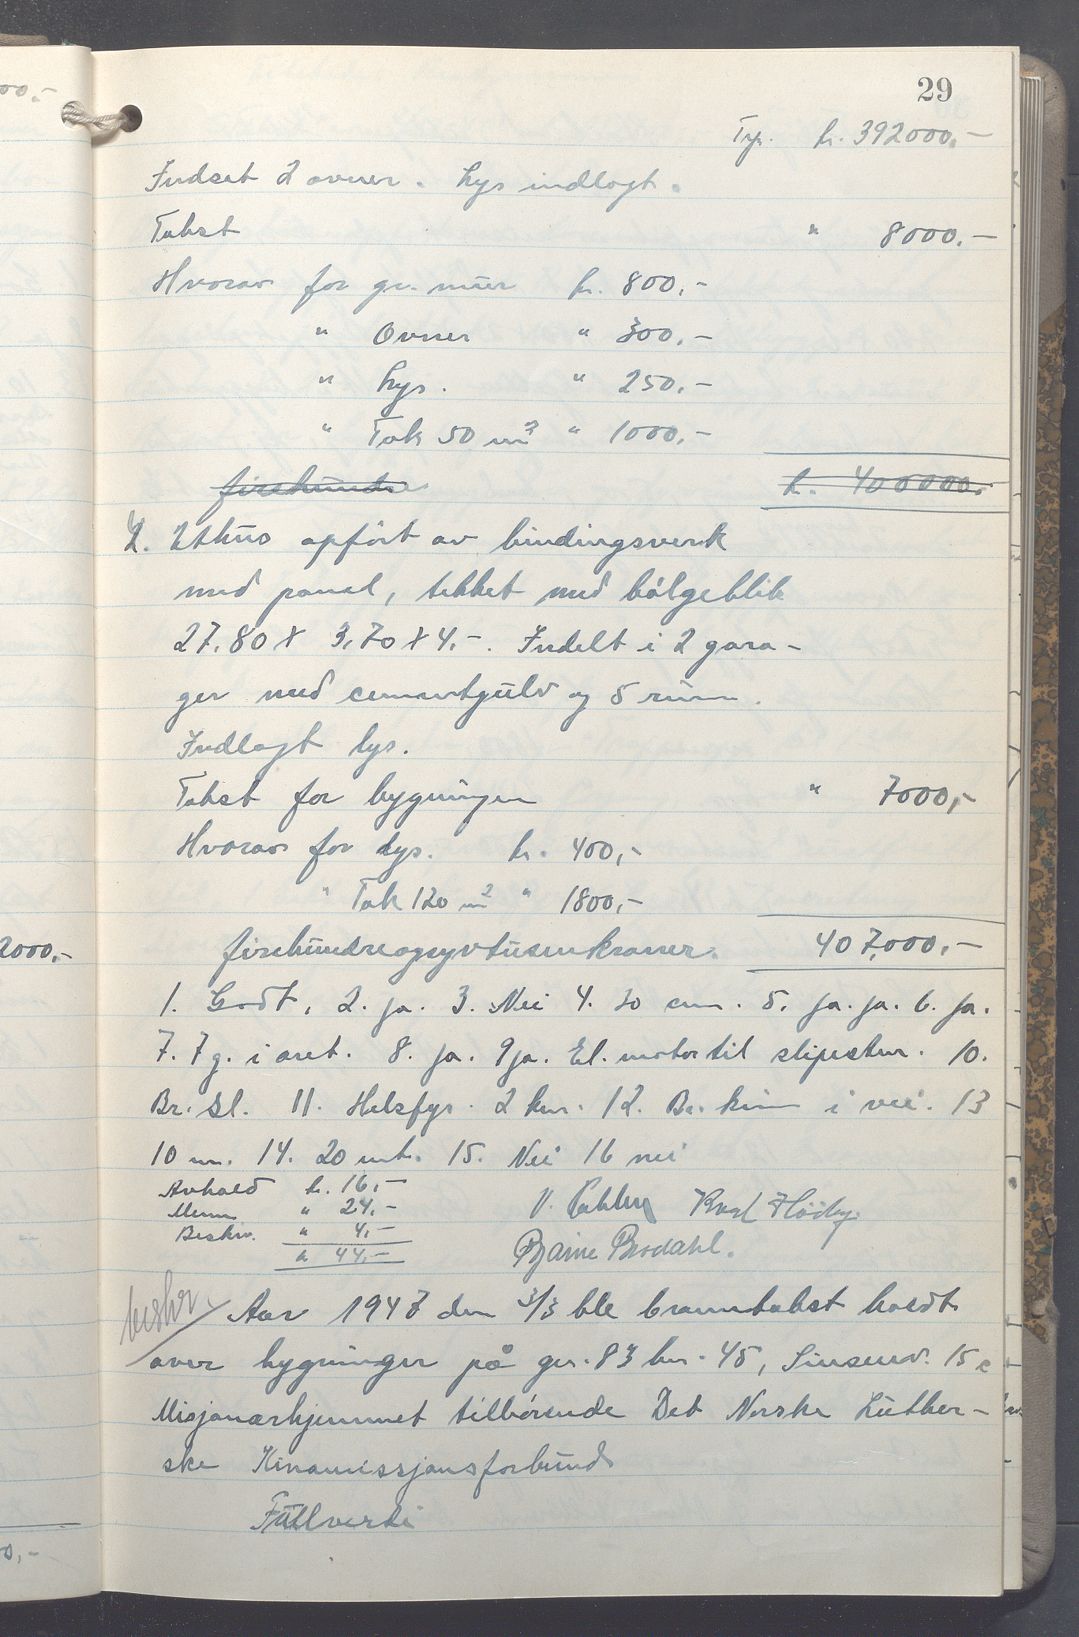 29
Trp. kr. 392000,-
Indsat 2 ovner. Lys indlagt.
Takst " 8000,-
Hvorav for gr. mur kr. 800,-
" Ovner " 300,-
" Lys. " 250,-
" Tak 50 m² " 1000,-
firehundre kr. 400000,-
2. Uthus opført av bindingsverk
med panel, tekket med bølgeblik
27,80 x 3,70 x 4,-. Indelt i 2 gara-
ger med cementgulv og 5 rum.
Indlagt lys.
Takst for bygningen " 7000,-
Hvorav for lys. kr. 400,-
" Tak 120 m² " 1800,-
firehundreogsyvtusenkroner. 407,000,-
1. Godt, 2. ja. 3. Nei 4. 20 cm. 5. ja. ja. 6. ja.
7. 7 g. i aret. 8. ja. 9 ja. El. motor til slipesten. 10.
Br. sl. 11. Helsfyr. 2 km. 12. Br. kum i vei. 13
10 m. 14. 20 mt. 15. Nei 16 nei
Avhold kr. 16,-
Menn " 24,-
Beskr. " 4,-
kr 44,-
Bjarne Brodahl.
beskr.
Aar 1947 den 3/3 ble branntakst holdt
over bygninger på gr. 83 br. 45, Sinsenv. 15
Misjonærhjemmet tilhørende Det Norske Luther-
ske Kinamissjonsforbund
Fullverdi
2000,-